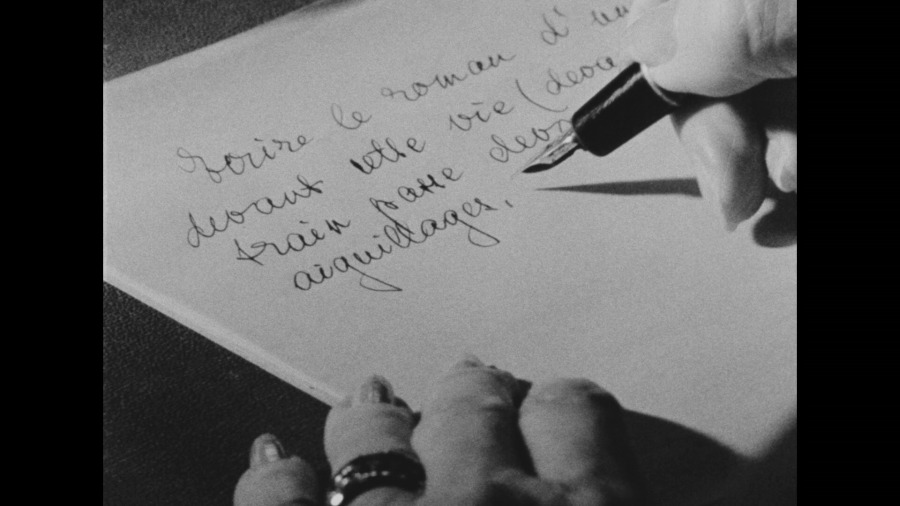 Écrire le roman d'un
devant cette vie (deva
train passe devant
aiguillages.